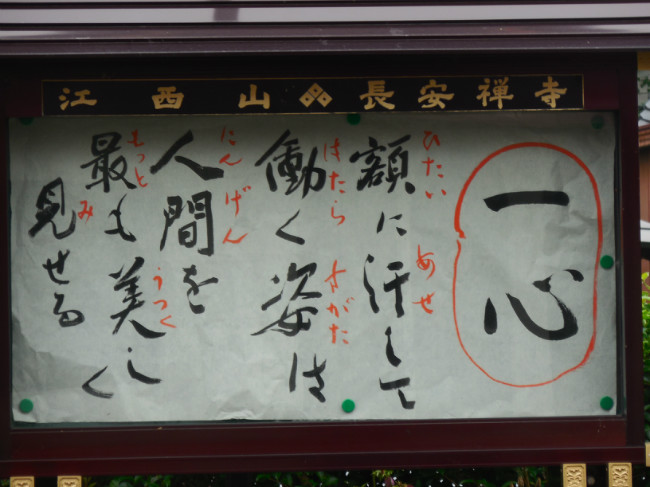 江西山 長安禅寺
一心
ひたい あせ
額に汗して
はたら すがた
働く姿は
にんげん
人間を
もっと うつく
最も美しく
み
見せる